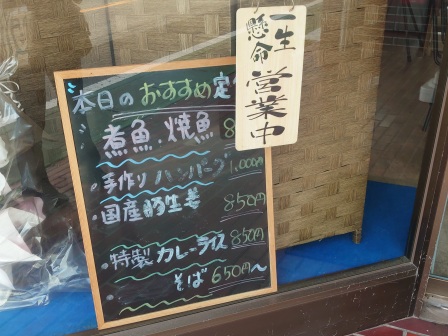 一生
懸命
営業中
本日のおすすめ定
煮魚・焼魚 8
・手作りハンバーグ 1,000円
・国産豚生姜 850円
・特製カレーライス 850円
・そば 650円〜